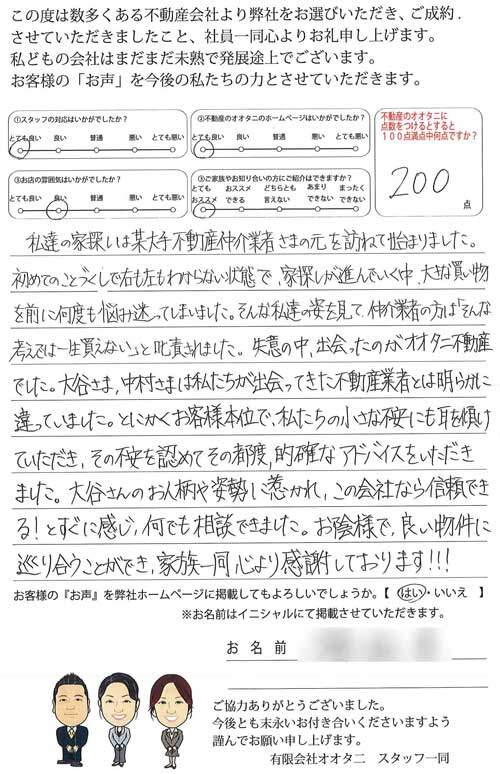 この度は数多くある不動産会社より弊社をお選びいただき、ご成約.
させていただきましたこと、社員一同心よりお礼申し上げます。
私どもの会社はまだまだ未熟で発展途上でございます。
お客様の「お声」を今後の私たちの力とさせていただきます。
①スタッフの対応はいかがでしたか?
とても良い 良い 普通 悪い とても悪い
②不動産のオオタニのホームページはいかがでしたか?
とても良い 良い 普通 悪い とても悪い
③お店の雰囲気はいかがでしたか?
とても良い 良い 普通 悪い とても悪い
③ご家族やお知り合いの方にご紹介はできますか?
とても オススメ どちらとも あまり まったく
オススメ できる 言えない できない できない
不動産のオオタニに
点数をつけるとすると
100点満点中何点ですか?
200
点
私達の家探しは某大手不動産仲介業者さまの元を訪ねて始まりました。
初めてのことづくしで右も左もわからない状態で、家探しが進んでいく中、大きな買い物
を前に何度も悩み迷ってしまいました。そんな私達の姿を見て、仲介業者の方は「そんな
考えでは一生買えない」と叱責されました。失意の中、出会ったのがオオタニ不動産
でした。大谷さま、中村さまは私たちが出会ってきた不動産業者とは明らかに
違っていました。とにかくお客様本位で、私たちの小さな不安にも耳を傾け
ていただき、その不安を認めてその都度、的確なアドバイスをいただき
ました。大谷さんのお人柄や姿勢に惹かれ、この会社なら信頼でき
る!とすぐに感じ、何でも相談できました。お陰様で、良い物件に
巡り合うことができ、家族一同心より感謝しております!!!
お客様の『お声』を弊社ホームページに掲載してもよろしいでしょうか。【 はい・いいえ 】
※お名前はイニシャルにて掲載させていただきます。
お 名 前
ご協力ありがとうございました。
今後とも末永いお付き合いくださいますよう
謹んでお願い申し上げます。
有限会社オオタニ スタッフ一同